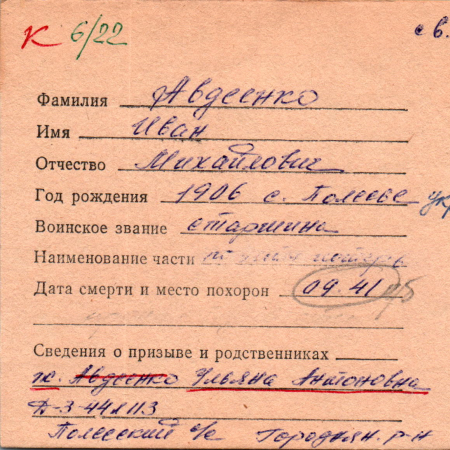 К 6/22
с в.
Фамилия Авдеенко
Имя Иван
Отчество Михайлович
Год рождения 1906 с. Полесье укр
Воинское звание старшина
Наименование части
Дата смерти и место похорон 09.41
Сведения о призыве и родственниках
ж. Авдеенко Ульяна Антоновна
П-3-44л113
Полесский с/с Городнян. р-н